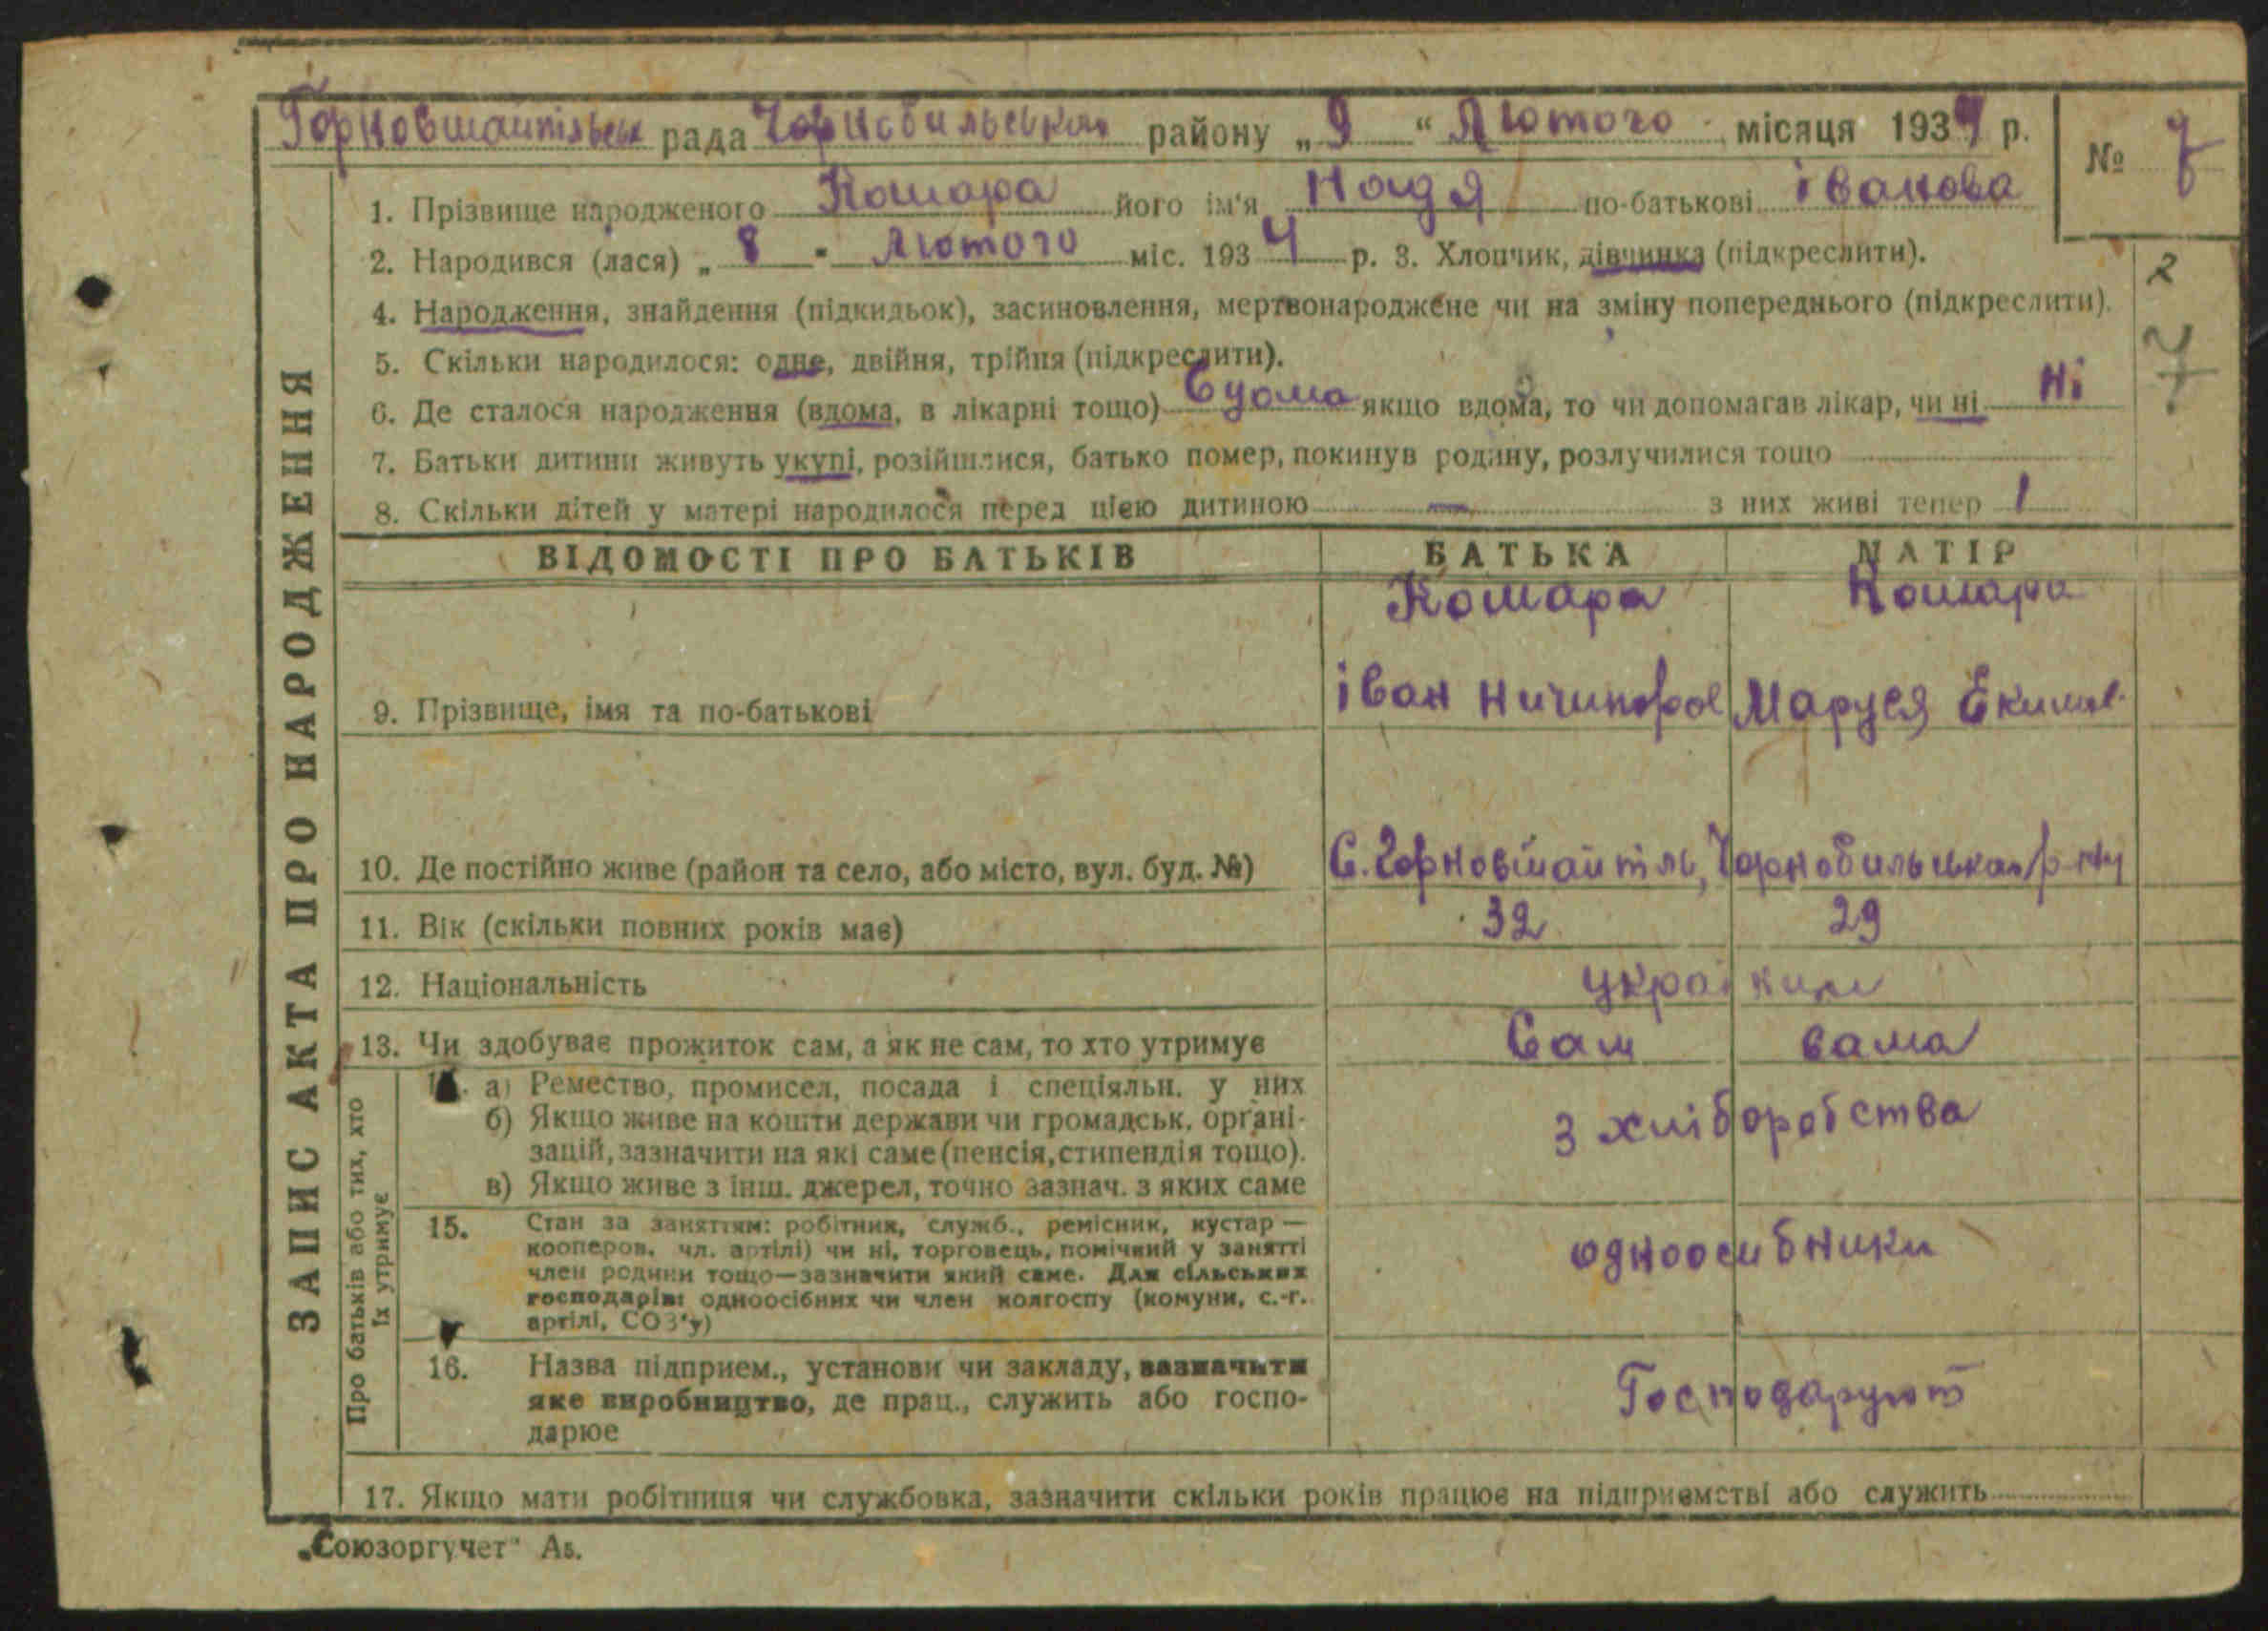 Горновшайпільськ рада Чорнобильськая району „ 9 “ Лютого місяця 1934 р.
№ 7
1. Прізвище народженого Кошара його ім'я Надя по-батькові іванова
2. Народився (лася) „ 8 " Лютого міс. 1934 р. 3. Хлопчик, дівчинка (підкреслити).
2
4. Народження, знайдення (підкидьок), засиновлення, мертвонароджене чи на зміну попереднього (підкреслити).
5. Скільки народилося: одне, двійня, трійня (підкреслити).
6. Де сталося народження (вдома, в лікарні тощо) вдома якщо вдома, то чи допомагав лікар, чи ні Ні
7. Батьки дитини живуть укупі, розійшлися, батько помер, покинув родину, розлучилися тощо
8. Скільки дітей у матері народилося перед цією дитиною — з них живі тепер 1
ЗАПИС АКТА ПРО НАРОДЖЕННЯ
ВІДОМОСТІ ПРО БАТЬКІВ БАТЬКА МАТІР
Кошара Кошара
9. Прізвище, імя та по-батькові іван Ничипоров Маруся Екимов.
10. Де постійно живе (район та село, або місто, вул. буд. №) С. Горновшайпіль, Чорнобильськая р-ну
11. Вік (скільки повних років має) 32 29
12. Національність україини
13. Чи здобуває прожиток сам, а як не сам, то хто утримує Сам сама
Про батьків або тих, хто
їх утримує
14. а) Ремество, промисел, посада і спеціяльн. у них
б) Якщо живе на кошти держави чи громадськ. органі-
зацій, зазначити на які саме (пенсія, стипендія тощо).
в) Якщо живе з інш. джерел, точно зазнач. з яких саме
з хліборобства
15. Стан за заняттям: робітник, служб., ремісник, кустар —
кооперов. чл. артілі) чи ні, торговець, помічний у занятті
член родини тощо—зазначити який саме. Для сільських
господарів: одноосібних чи член колгоспу (комуни, с.-г.
артілі, СОЗ'у)
одноосибники
16. Назва підприєм., установи чи закладу, зазначити
яке виробництво, де прац., служить або госпо-
дарює
Господарують
17. Якщо мати робітниця чи службовка, зазначити скільки років працює на підприємстві або служить
„Союзоргучет" А5.